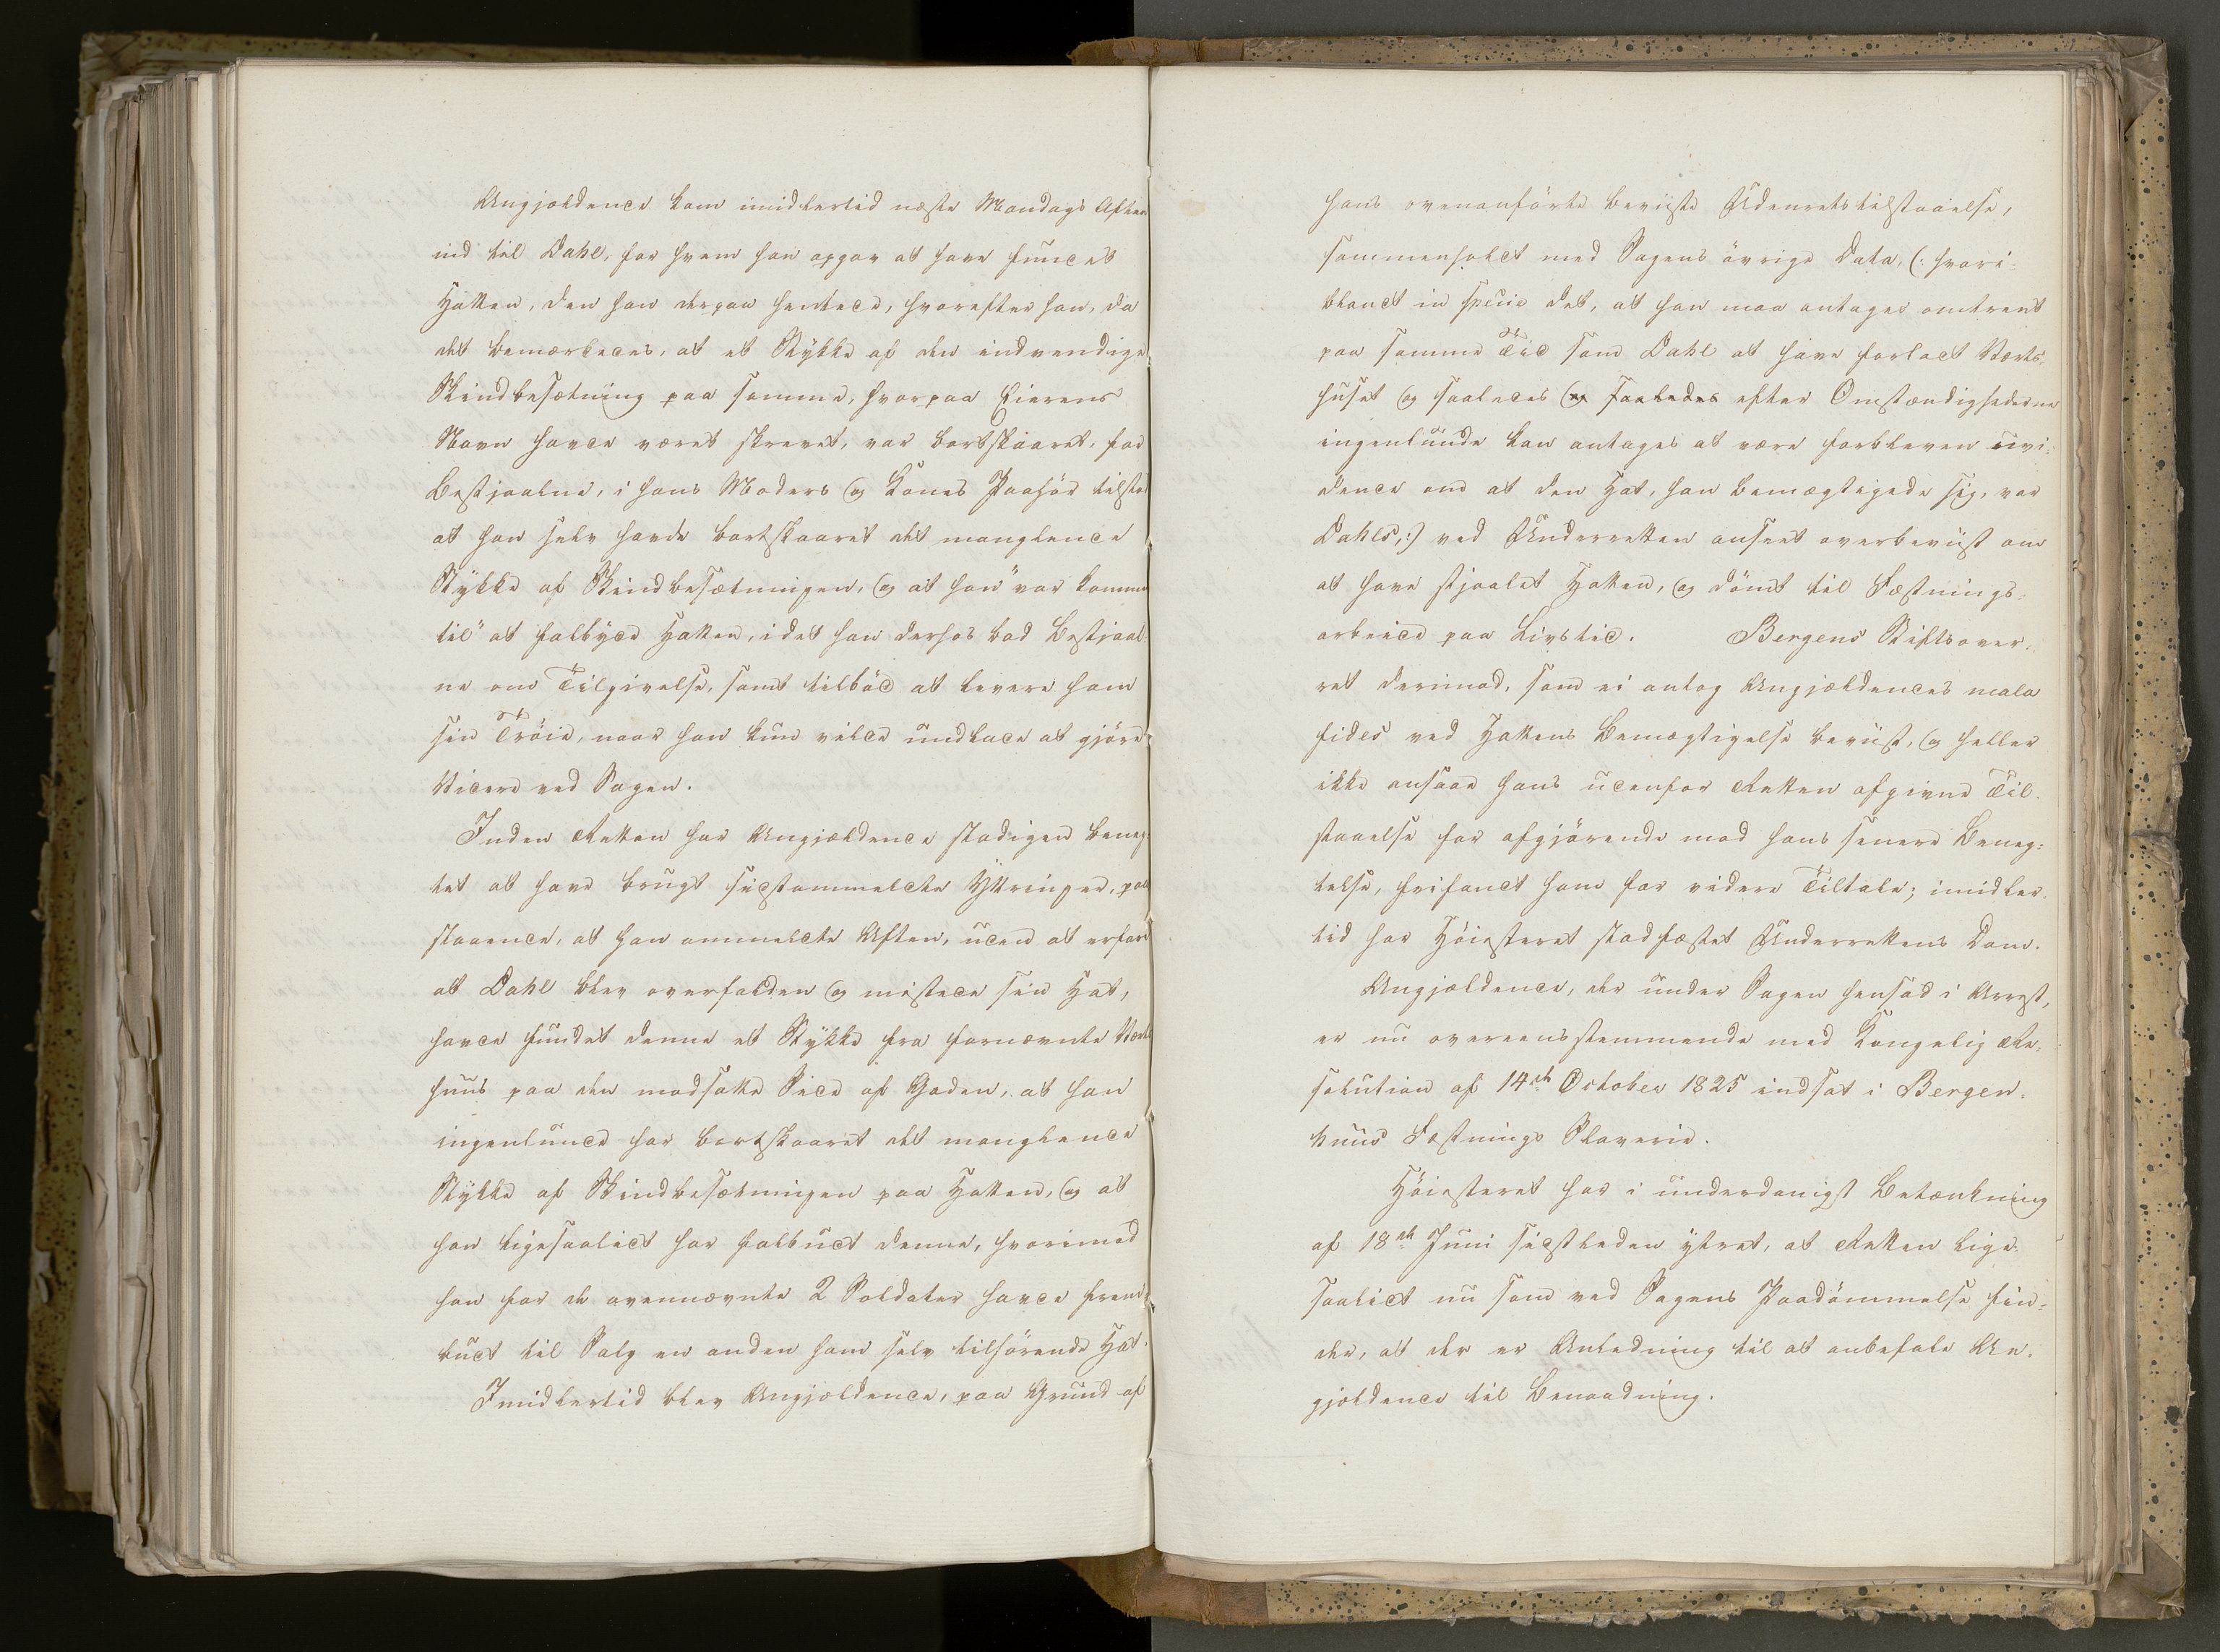 Angjældende kom imidlertid næste Mandags Aften
ind til Dahl, for hvem han opgav at have fundet
Hatten, den han derpaa hentede, hvorefter han, da
det bemærkedes, at et Stykke af den indvendige
Skindbesætning paa samme, hvorpaa Eierens
Navn havde været skrevet, var bortskaaret, for
Bestjaalne, i hans Moders og Kones Paahør tilstod
at han selv havde bortskaaret det manglende
Stykke af Skindbesætningen, og at han "var kommen
til" at falbyde Hatten, idet han derhos bad Bestjaal-
ne om Tilgivelse, samt tilbød at levere ham
sin Trøie, naar han kun vilde undlade at gjøre
Videre ved Sagen.
Inden Retten har Angjældende stadigen beneg-
tet at have brugt sidstommeldte Yttringer, paa-
staaende, at han ommeldte Aften, uden at erfare
at Dahl blev overfalden og mistede sin Hat,
havde fundet denne et Stykke fra fornævnte Værts-
huus paa den modsatte Side af Gaden, at han
ingenlunde har bortskaaret det manglende
Stykke af Skindbesætningen paa Hatten, og at
han ligesaalidt har falbudt denne, hvorimod
han for de ovennævnte 2 Soldater havde frem-
budt til Salg en anden ham selv tilhørende Hat.
Imidlertid blev Angjældende, paa Grund af
hans ovenanførte beviiste Udenretstilstaaelse,
sammenholdt med Sagens øvrige Data, (: hvori-
blandt in specie det, at han maa antages omtrent
paa samme Tid som Dahl at have forladt Værts-
huset og saaledes og saaledes efter Omstændighederne
ingenlunde kan antages at være forbleven uvi-
dende om at den Hat, han bemægtigede sig, var
Dahls,:) ved Underretten anseet overbeviist om
at have stjaalet Hatten, og dømt til Fæstnings-
arbeide paa Livstid. Bergens Stiftsover-
ret derimod, som ei antog Angjældendes mala
fides ved Hattens Bemægtigelse beviist, og heller
ikke ansaae hans udenfor Retten afgivne Til-
staaelse for afgjørende mod hans senere Beneg-
telse, frifandt ham for videre Tiltale; imidler-
tid har Høiesteret stadfæstet Underrettens Dom.
Angjældende, der under Sagen hensad i Arrest,
er nu overeensstemmende med Kongelig Re-
solution af 14de October 1825 indsat i Bergen-
huus Fæstnings Slaverie.
Høiesteret har i underdanigst Betænkning
af 18de Juni sidstleden ytret, at Retten lige-
saalidt nu som ved Sagens Paadømmelse fin-
der, at der er Anledning til at anbefale An-
gjældende til Benaadning.